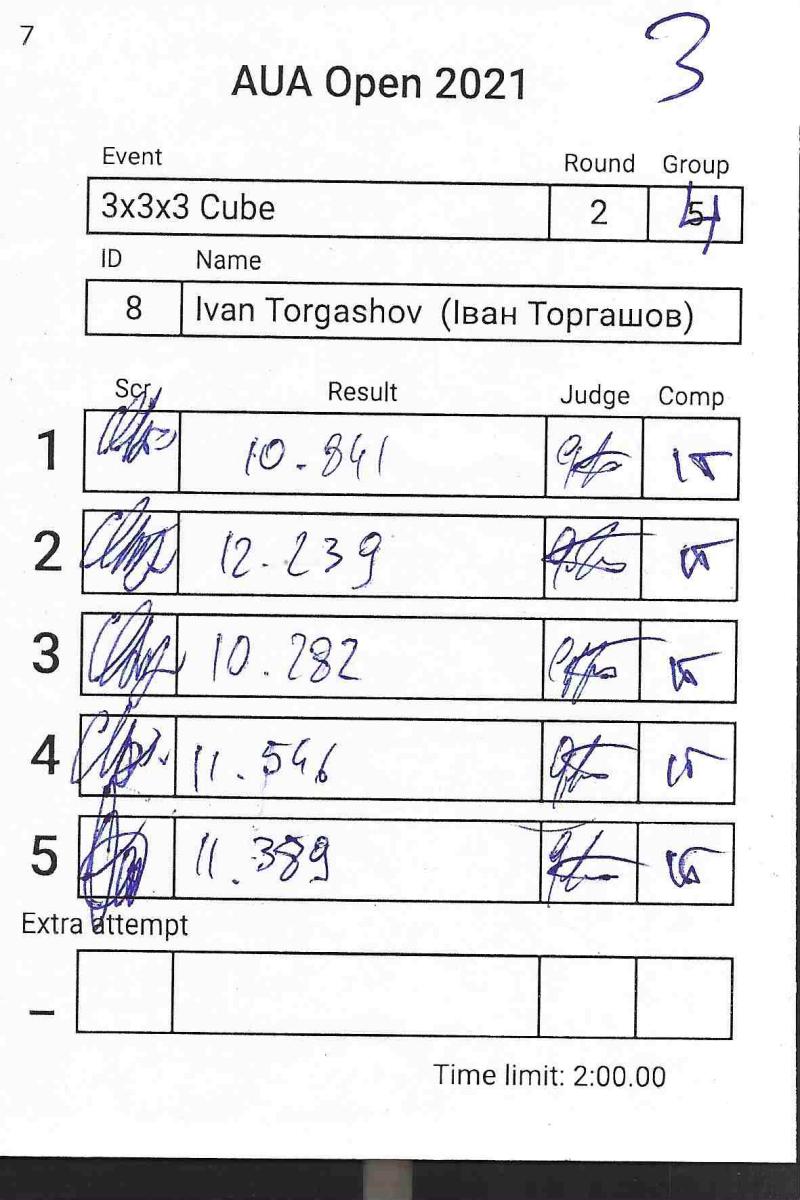 7
3
AUA Open 2021
Event Round Group
3x3x3 Cube 2 4
ID Name
8 Ivan Torgashov (Іван Торгашов)
Scr Result Judge Comp
1 10.841
2 12.239
3 10.282
4 11.546
5 11.389
Extra attempt
_
Time limit: 2:00.00